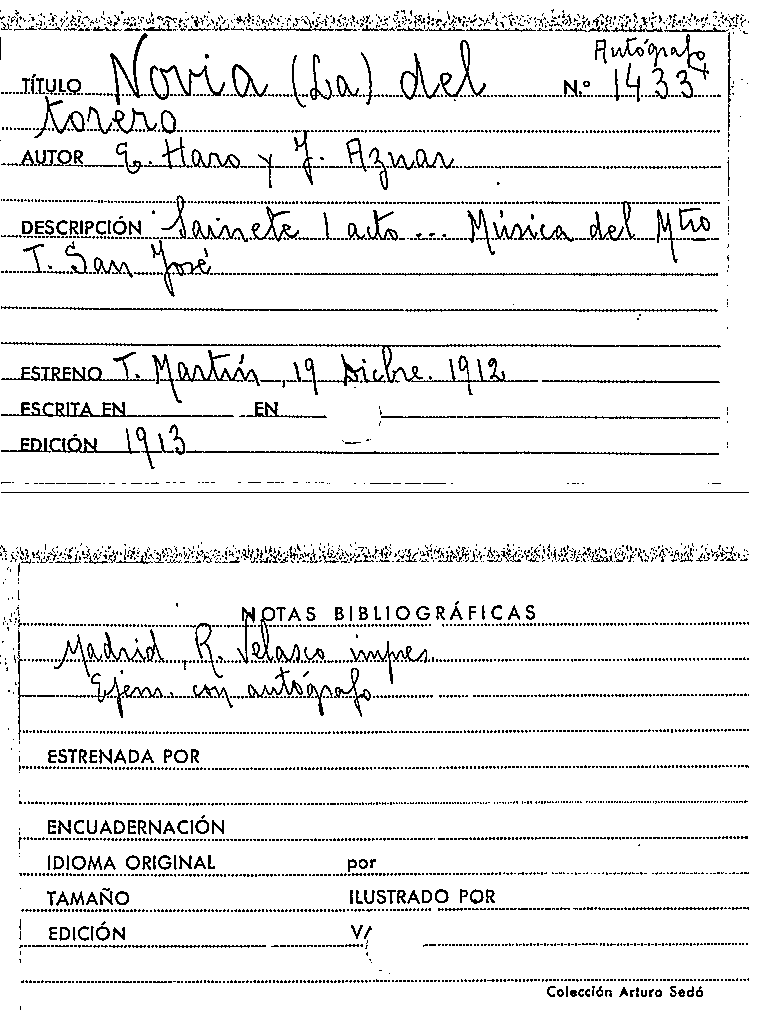 Autógrafo
TÍTULO Novia (La) del N.º 14334
torero
AUTOR E. Haro y J. Aznar
DESCRIPCIÓN Sainete 1 acto... Música del Mtro
T. San José
ESTRENO T. Martín, 19 Dicbre. 1912
ESCRITA EN EN
EDICIÓN 1913
NOTAS BIBLIOGRÁFICAS
Madrid, R. Velasco impres.
Ejem. con autógrafo
ESTRENADA POR
ENCUADERNACIÓN
IDIOMA ORIGINAL por
TAMAÑO ILUSTRADO POR
EDICIÓN V/
Colección Arturo Sedó